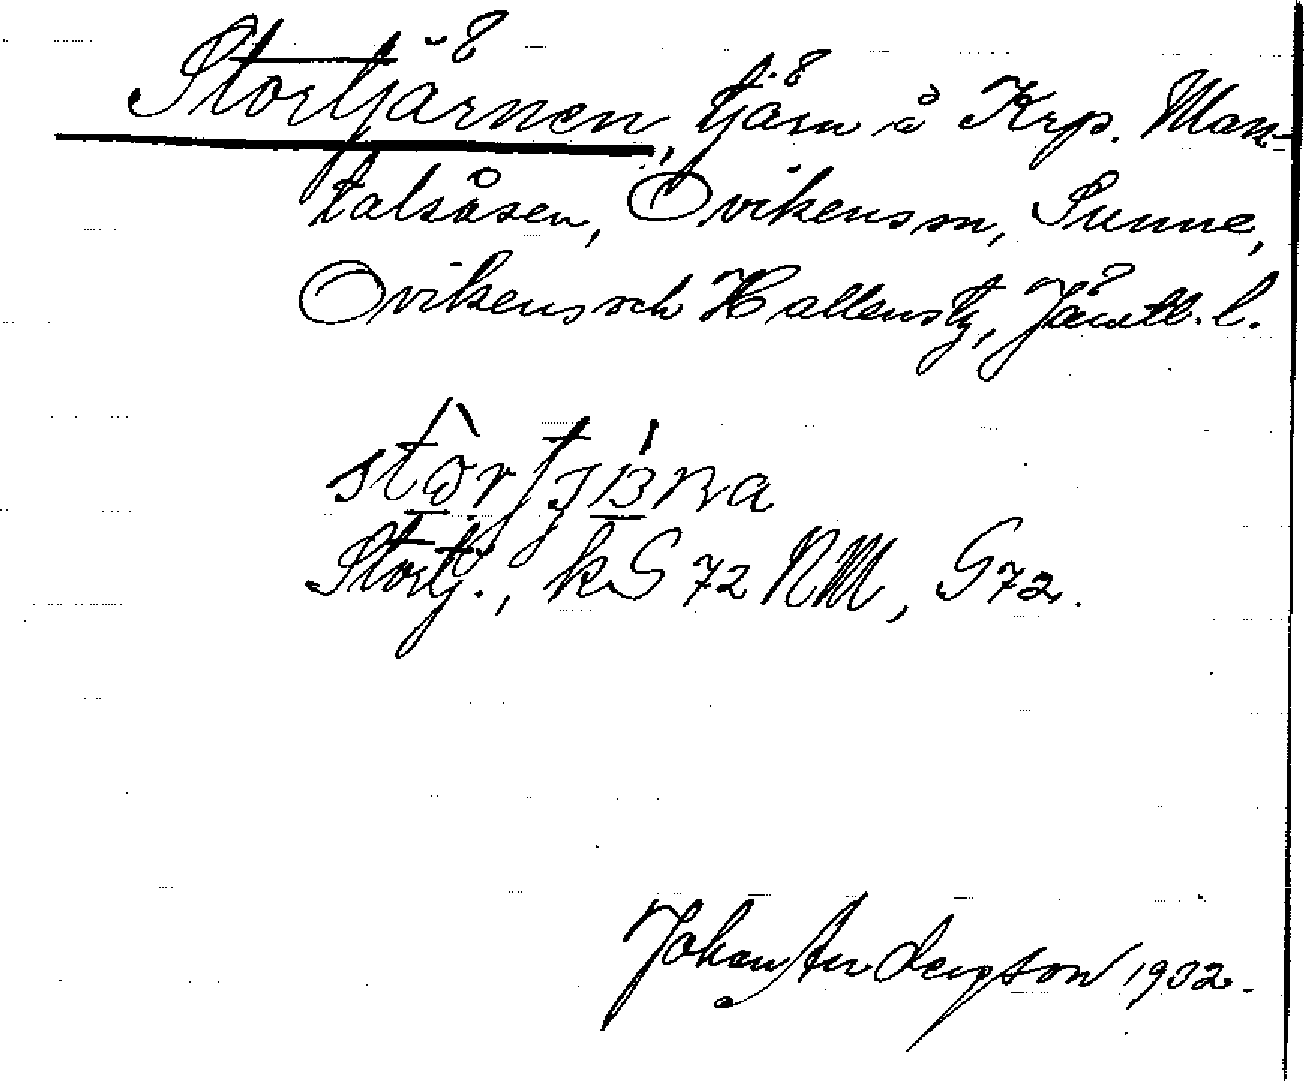 Stortjärnen, tjärn å Krp. Man-
talsåsen, Ovikens sn, Sunne,
Ovikens och Hallens tg, Jämtl. l.
Stortj., kS 72 NM, G 72.
Johan Anderson 1932.